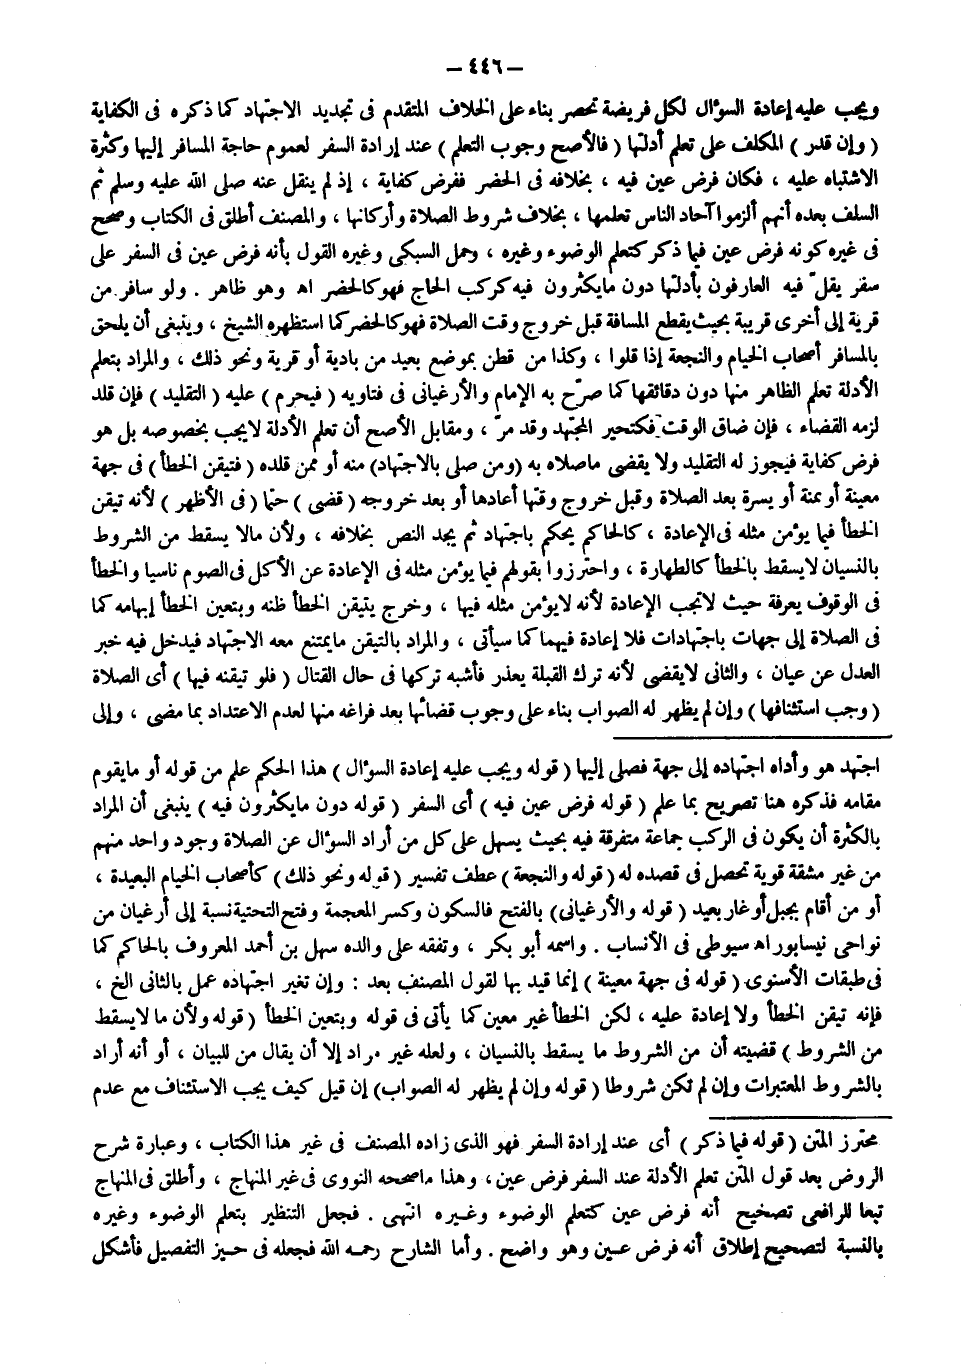 — ٤٤٦ —
ويجب عليه إعادة السؤال لكل فريضة تحصر بناء على الخلاف المتقدم فى تجديد الاجتهاد كما ذكره فى الكفاية
( وإن قدر ) المكلف على تعلم أدلتها ( فالأصح وجوب التعلم ) عند إرادة السفر لعموم حاجة المسافر إليها وكثرة
الاشتباه عليه ، فكان فرض عين فيه ، بخلافه فى الحضر ففرض كفاية ، إذ لم ينقل عنه صلى الله عليه وسلم ثم
السلف بعده أنهم ألزموا آحاد الناس تعلمها ، بخلاف شروط الصلاة وأركانها ، والمصنف أطلق فى الكتاب وصحح
فى غيره كونه فرض عين فيما ذكر كتعلم الوضوء وغيره ، وحمل السبكى وغيره القول بأنه فرض عين فى السفر على
سفر يقلّ فيه العارفون بأدلتها دون مايكثرون فيه كركب الحاج فهو كالحضر اه وهو ظاهر . ولو سافر من
قرية إلى أخرى قريبة بحيث يقطع المسافة قبل خروج وقت الصلاة فهو كالحضر كما استظهره الشيخ ، وينبغى أن يلحق
بالمسافر أصحاب الخيام والنجعة إذا قلوا ، وكذا من قطن بموضع بعيد من بادية أو قرية ونحو ذلك ، والمراد بتعلم
الأدلة تعلم الظاهر منها دون دقائقها كما صرّح به الإمام والأرغيانى فى فتاويه ( فيحرم ) عليه ( التقليد ) فإن قلد
لزمه القضاء ، فإن ضاق الوقت فكتحير المجتهد وقد مرّ ، ومقابل الأصح أن تعلم الأدلة لايجب بخصوصه بل هو
فرض كفاية فيجوز له التقليد ولا يقضى ماصلاه به (ومن صلى بالاجتهاد) منه أو ممن قلده ( فتيقن الخطأ ) فى جهة
معينة أو يمنة أو يسرة بعد الصلاة وقبل خروج وقتها أعادها أو بعد خروجه ( قضى ) حتما ( فى الأظهر ) لأنه تيقن
الخطأ فيما يؤمن مثله فى الإعادة ، كالحاكم يحكم باجتهاد ثم يجد النص بخلافه ، ولأن مالا يسقط من الشروط
بالنسيان لايسقط بالخطأ كالطهارة ، واحترزوا بقولهم فيما يؤمن مثله فى الإعادة عن الأكل فى الصوم ناسيا والخطأ
فى الوقوف بعرفة حيث لاتجب الإعادة لأنه لايؤمن مثله فيها ، وخرج بتيقن الخطأ ظنه وبتعين الخطأ إبهامه كما
فى الصلاة إلى جهات باجتهادات فلا إعادة فيهما كما سيأتى ، والمراد بالتيقن مايمتنع معه الاجتهاد فيدخل فيه خبر
العدل عن عيان ، والثانى لايقضى لأنه ترك القبلة بعذر فأشبه تركها فى حال القتال ( فلو تيقنه فيها ) أى الصلاة
( وجب استئنافها ) وإن لم يظهر له الصواب بناء على وجوب قضائها بعد فراغه منها لعدم الاعتداد بما مضى ، وإلى
اجتهد هو وأداه اجتهاده إلى جهة فصلى إليها ( قوله ويجب عليه إعادة السؤال ) هذا الحكم علم من قوله أو مايقوم
مقامه فذكره هنا تصريح بما علم ( قوله فرض عين فيه ) أى السفر ( قوله دون مايكثرون فيه ) ينبغى أن المراد
بالكثرة أن يكون فى الركب جماعة متفرقة فيه بحيث يسهل على كل من أراد السؤال عن الصلاة وجود واحد منهم
من غير مشقة قوية تحصل فى قصده له ( قوله والنجعة ) عطف تفسير ( قوله ونحو ذلك ) كأصحاب الخيام البعيدة ،
أو من أقام بجبل أو غار بعيد ( قوله والأرغيانى ) بالفتح فالسكون وكسر المعجمة وفتح التحتية نسبة إلى أرغيان من
نواحى نيسابور اه سيوطى فى الأنساب . واسمه أبو بكر ، وتفقه على والده سهل بن أحمد المعروف بالحاكم كما
فى طبقات الأسنوى ( قوله فى جهة معينة ) إنما قيد بها لقول المصنف بعد : وإن تغير اجتهاده عمل بالثانى الخ ،
فإنه تيقن الخطأ ولا إعادة عليه ، لكن الخطأ غير معين كما يأتى فى قوله وبتعين الخطأ ( قوله ولأن ما لايسقط
من الشروط ) قضيته أن من الشروط ما يسقط بالنسيان ، ولعله غير مراد إلا أن يقال من للبيان ، أو أنه أراد
بالشروط المعتبرات وإن لم تكن شروطا ( قوله وإن لم يظهر له الصواب) إن قيل كيف يجب الاستئناف مع عدم
محترز المتن ( قوله فيما ذكر ) أى عند إرادة السفر فهو الذى زاده المصنف فى غير هذا الكتاب ، وعبارة شرح
الروض بعد قول المتن تعلم الأدلة عند السفر فرض عين ، وهذا ماصححه النووى فى غير المنهاج ، وأطلق فى المنهاج
تبعا للرافعى تصحيح أنه فرض عين كتعلم الوضوء وغيره انتهى . فجعل التنظير بتعلم الوضوء وغيره
بالنسبة لتصحيح إطلاق أنه فرض عين وهو واضح . وأما الشارح رحمه الله فجعله فى حيز التفصيل فأشكل